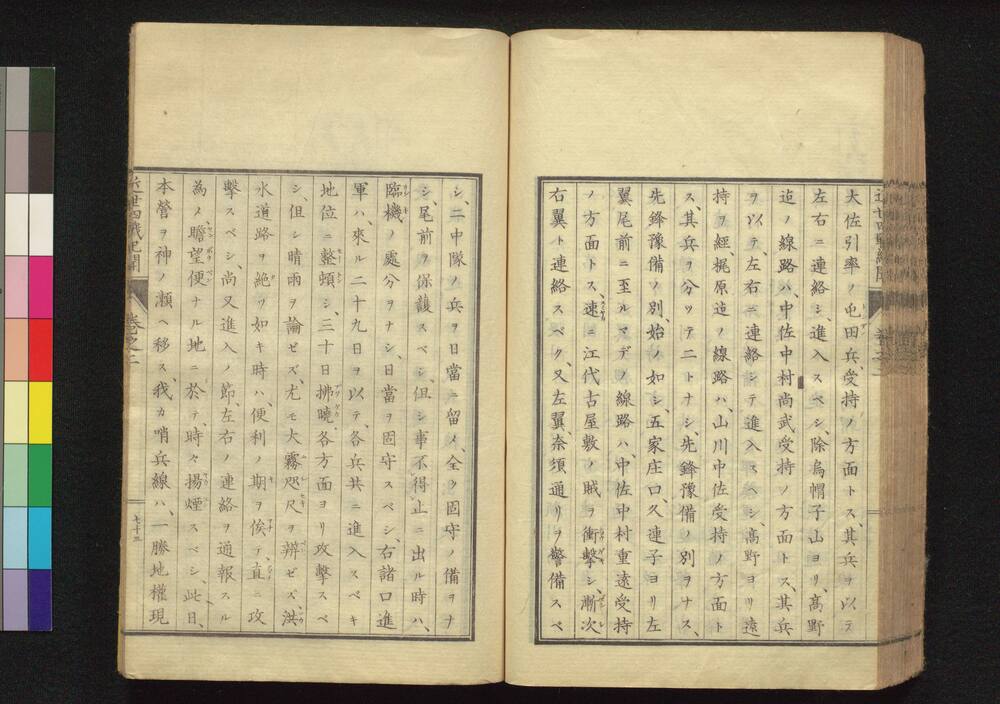 大佐引率ノ屯田兵、受持ノ方面トス、其兵ヲ以テ
左右ニ連絡シ、進入スベシ、除烏帽子山ヨリ、高野
迠ノ線路ハ、中佐中村尚武受持ノ方面トス、其兵
ヲ以テ、左右ニ連絡シテ進入スヘシ、高野ヨリ遠
持ヲ經、梶原迠ノ線路ハ、山川中佐受持ノ方面ト
ス、其兵ヲ分ツテ二トナシ、先鋒豫備ノ別ヲナス、
先鋒豫備ノ別、始ノ如シ、五家庄口、久連子ヨリ左
翼尾前ニ至ルマデノ線路ハ、中佐中村重遠受持
ノ方面トス、速ニ江代古屋敷ノ賊ヲ衝擊シ、漸次
右翼ト連絡スベク、又左翼、奈須通リヲ警備スベ
シ、二中隊ノ兵ヲ日當ニ留メ、全ク固守ノ備ヲナ
シ、尾前ヲ保護スベシ、但シ事不得止ニ出ル時ハ、
臨機ノ處分ヲナシ、日當ヲ固守スベシ、右諸口進
軍ハ、來ル二十九日ヲ以テ、各兵共ニ進入スベキ
地位ニ整頓シ、三十日拂曉、各方面ヨリ攻擊スベ
シ、但シ晴雨ヲ論ゼズ、尤モ大霧咫尺ヲ辨ゼズ、洪
水道路ヲ絶ツ如キ時ハ、便利ノ期ヲ俟テ、直ニ攻
擊スベシ、尚又進入ノ節、左右ノ連絡ヲ通報スル
為メ、瞻望便ナル地ニ於テ、時々揚煙スベシ、此日、
本營ヲ神ノ瀬ヘ移ス、我カ哨兵線ハ、一勝地權現
七十三